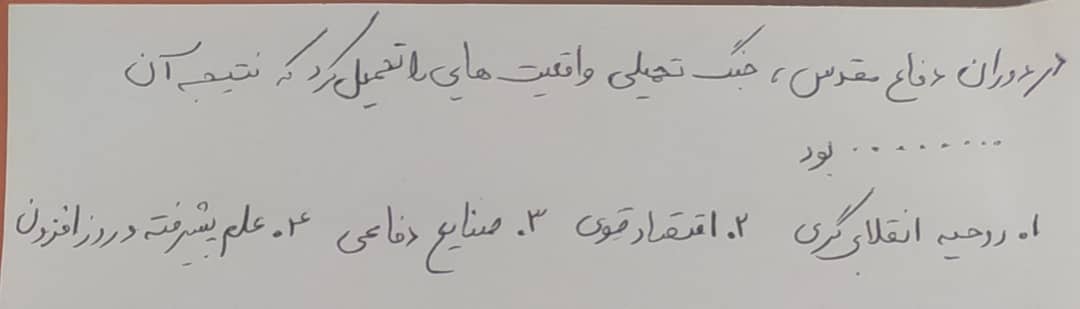 در دوران دفاع مقدس، جنگ تحمیلی واقعیت هایی را تحمیل کرد که نتیجه آن
......... بود
۱. روحیه انقلابی گری ۲. اقتصاد قوی ۳. صنایع دفاعی ۴. علم پیشرفته و روز افزون